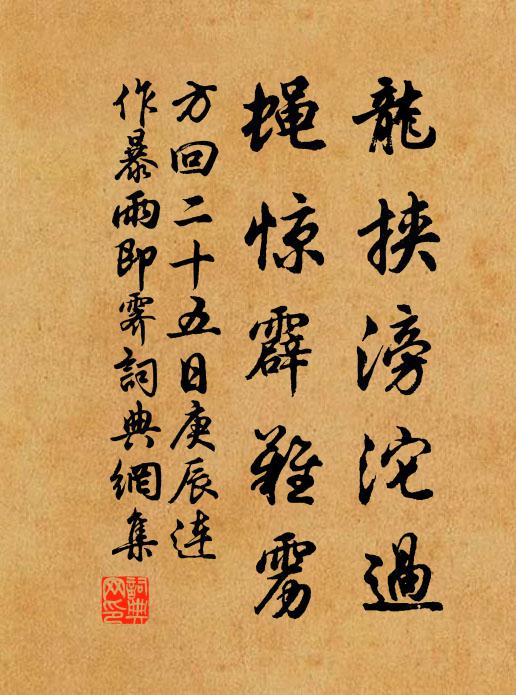 龍挾滂沱過
蝇惊霹難雳
方回二十五日庚辰連
作暴雨即霽詞典網集
詞典
网印